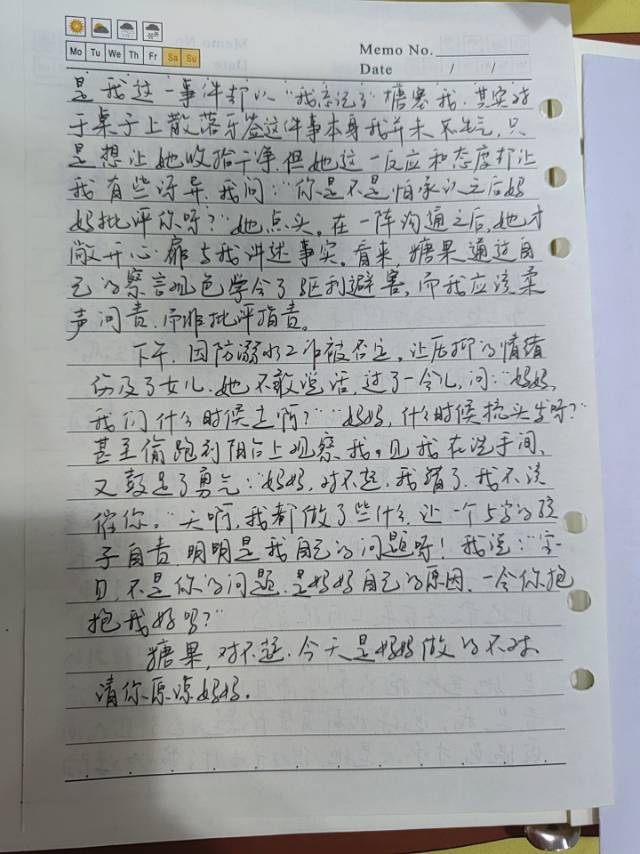 Mo Tu We Th Fr Sa Su
Memo No.
Date / /
是我这一事件却以“我忘记了”搪塞我。其实对
于桌子上散落牙签这件事本身我并未不生气,只
是想让她收拾干净,但她这一反应和态度却让
我有些讶异,我问:“你是不是怕承认之后妈
妈批评你呀?”她点头。在一阵沟通之后,她才
敞开心扉与我讲述事实。看来,糖果通过自
己的察言观色学会了趋利避害,而我应该柔
声问责,而非批评指责。
下午,因防溺水工作被否定,让压抑的情绪
伤及了女儿。她不敢说话,过了一会儿,问:“妈妈,
我们什么时候走啊?”“妈妈,什么时候梳头发呀?”
甚至偷跑到阳台上观察我。见我在洗手间,
又鼓足了勇气:“妈妈,对不起,我错了,我不该
催你。”天啊,我都做了些什么,让一个5岁的孩
子自责,明明是我自己的问题呀!我说:“宝
贝,不是你的问题,是妈妈自己的原因,一会你抱
抱我好吗?”
糖果,对不起,今天是妈妈做的不对,
请你原谅妈妈。